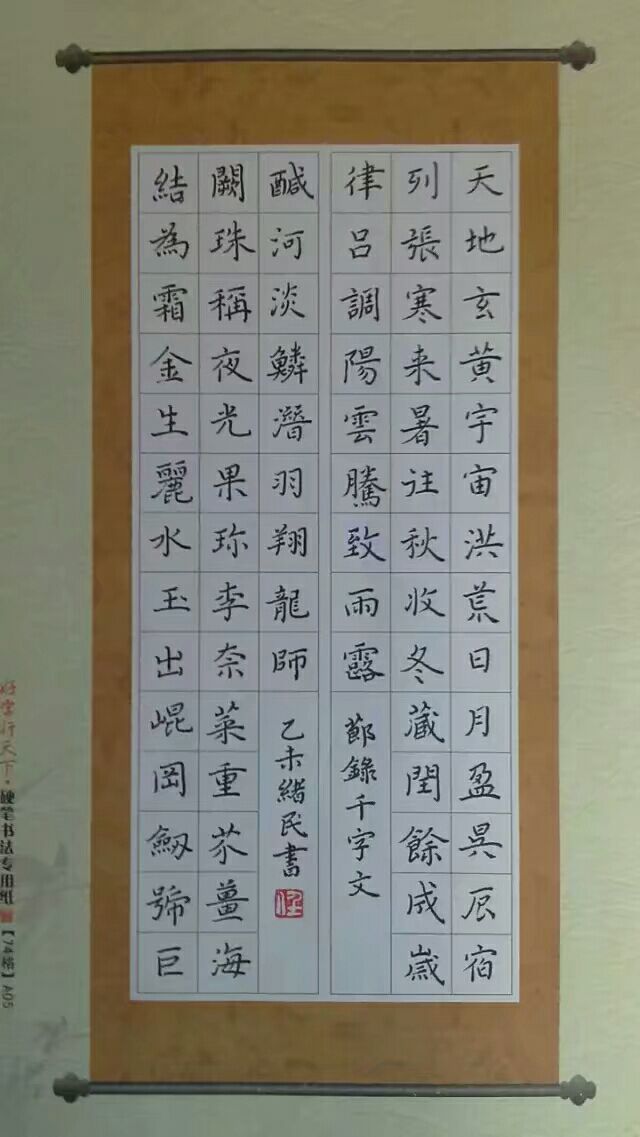 天地玄黄宇宙洪荒日月盈昃辰宿
列張寒来暑往秋收冬藏閏餘成歲
律呂調陽雲騰致雨露
節錄千字文
結為霜金生麗水玉出崐岡劒號巨
闕珠稱夜光果珍李奈菜重芥薑海
鹹河淡鱗潛羽翔龍師
乙未緒民書
行天下·硬笔书法专用纸【74格】A05